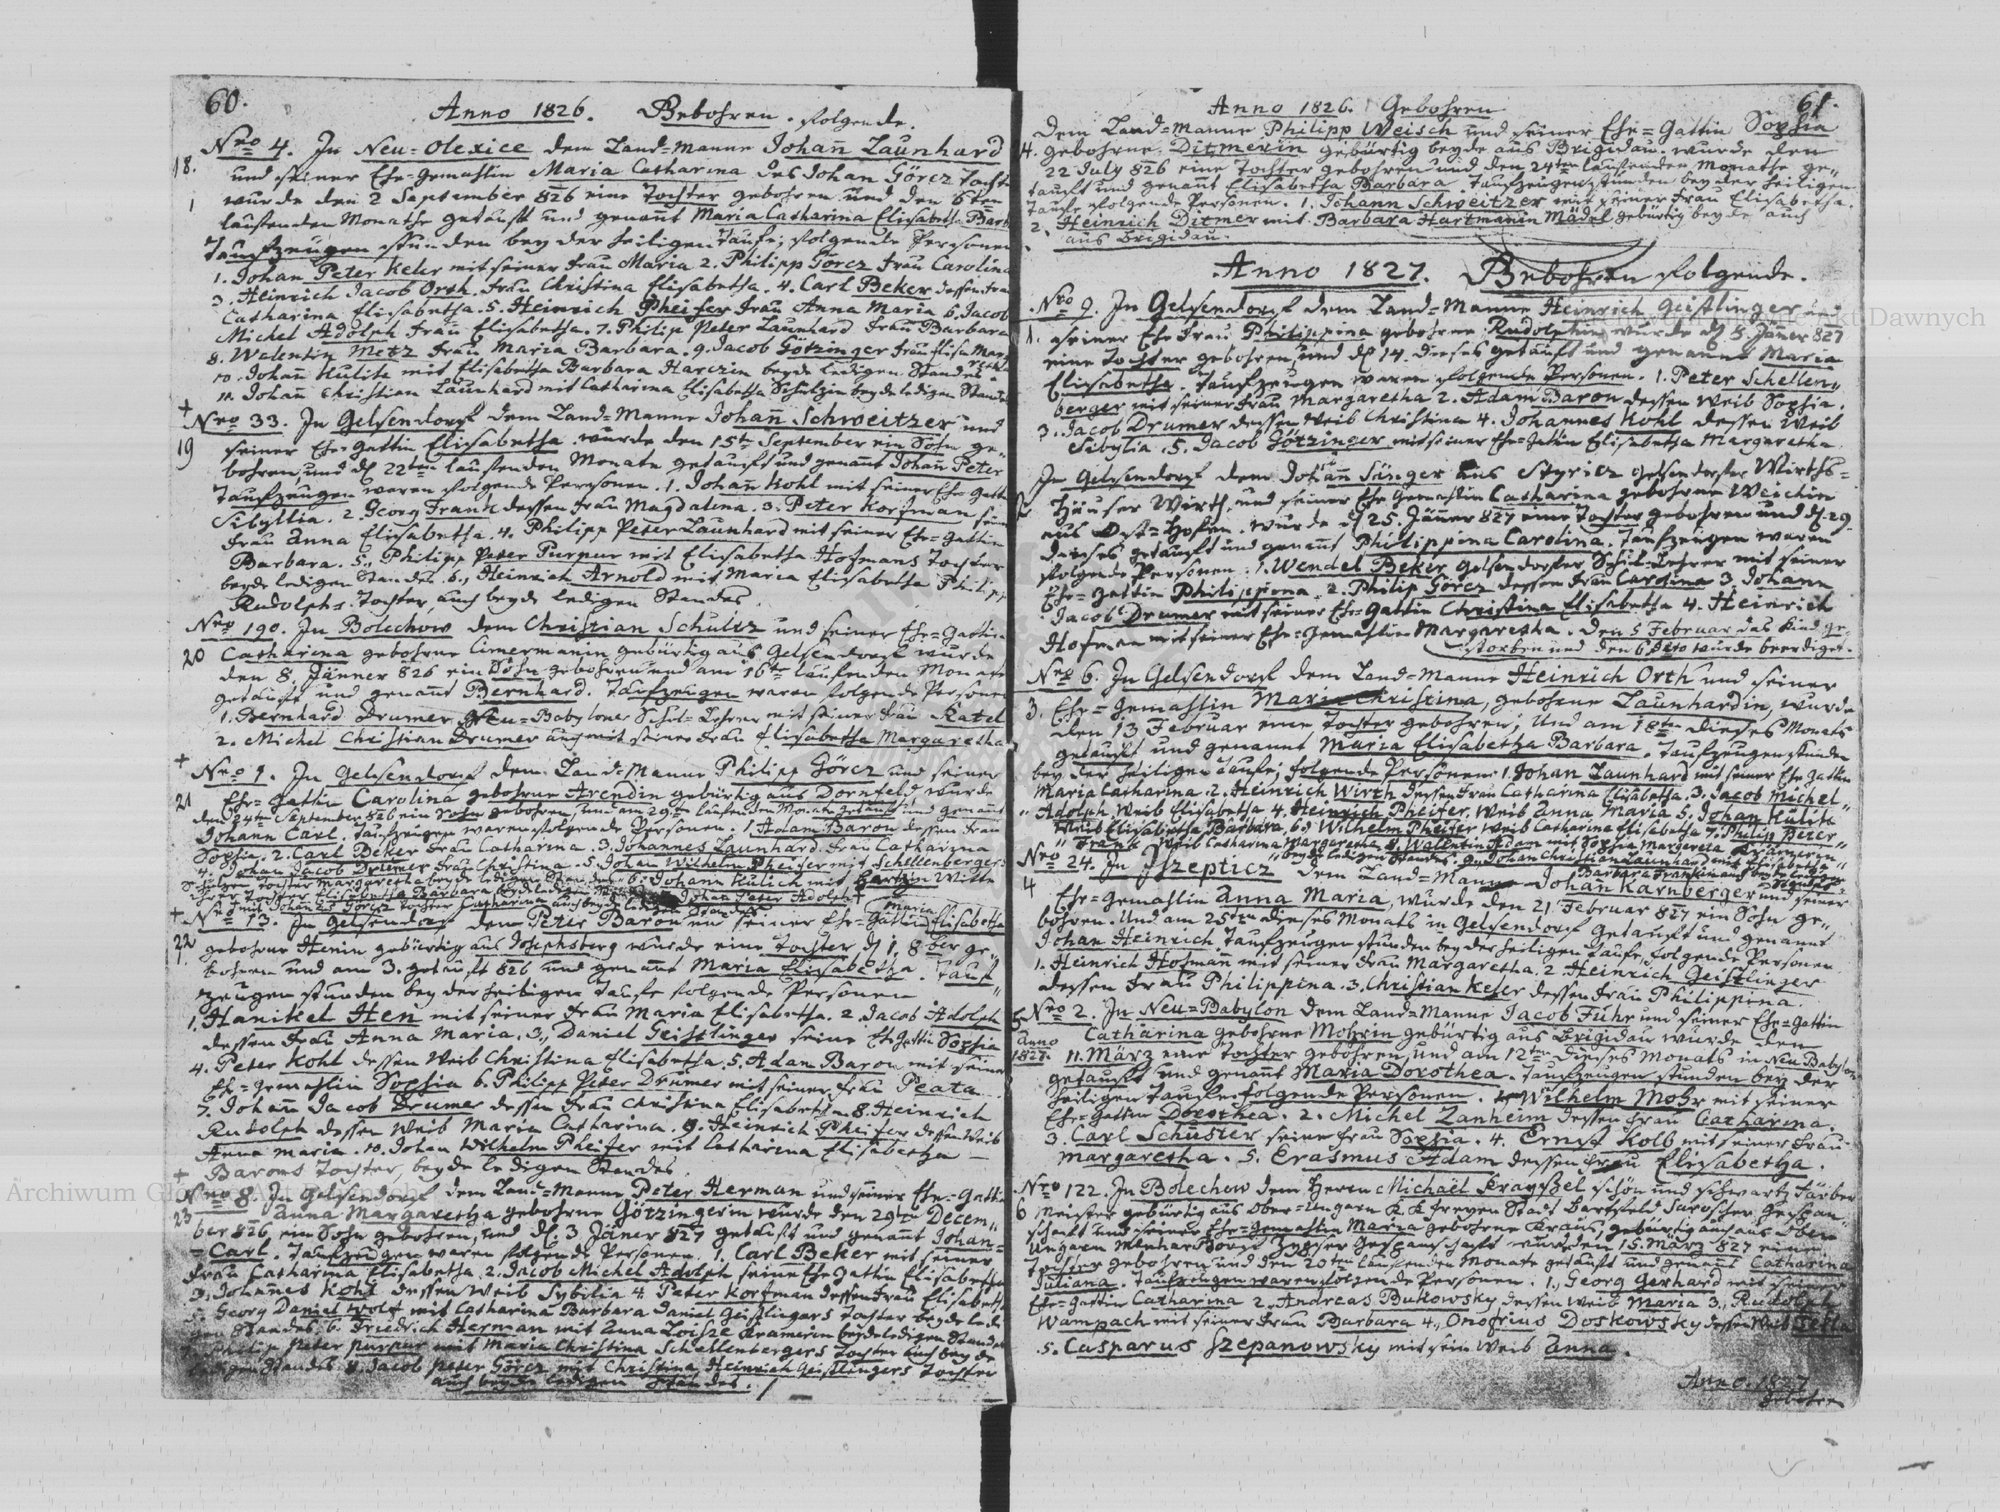 60.
Anno 1826. Gebohren. folgende.
Nro 4. In Neu-Olexice dem Land-Manne Johañ Launhard
18. und seiner Ehe-Gemahlin Maria Catharina des Johan Görcz Tochter
1 wurde den 2 September 826 eine Tochter gebohren und den 6ten
laufenden Monaths getauft und genañt Maria Catharina Elisabetha Barb
Taufzeugen stunden bey der heiligen Taufe; folgende Personen
1. Johan Peter Keler mit seiner Frau Maria 2. Philipp Görcz Frau Carolina
3. Heinrich Jacob Orth. Frau Christina Elisabetha. 4. Carl Beker dessen Frau
Catharina Elisabetha. 5. Heinrich Pheifer Frau Anna Maria 6. Jacob
Michel Adolph Frau Elisabetha. 7. Philip Peter Launhard Frau Barbara
8. Walentin Metz Frau Maria Barbara. 9. Jacob Götzinger Frau Elisa Marg
10. Johañ Kulik mit Elisabetha Barbara Harczin beyde ledigen Standes
11. Johañ Christian Launhard mit Catharina Elisabetha Schulzin beyde ledigen Standes
+ Nro 33. In Gelsendorf dem Land-Manne Johañ Schweitzer und
19 seiner Ehe-Gattin Elisabetha wurde den 15ten September ein Sohn ge-
bohren, und d. 22ten laufenden Monats getauft und genañt Johañ Peter
Taufzeugen waren folgende Personen. 1. Johañ Kohl mit seiner Ehe-Gattin
Sibyllia. 2. Georg Frank dessen Frau Magdalena. 3. Peter Korfman seine
Frau Anna Elisabetha. 4. Philipp Peter Launhard mit seiner Ehe-Gattin
Barbara. 5., Philipp Peter Purpur mit Elisabetha Hofmans Tochter
beyde ledigen Standes. 6., Heinrich Arnold mit Maria Elisabetha Philipp
Rudolphs. Tochter, auch beyde ledigen Standes
Nro 190. In Bolechow dem Christian Schultz und seiner Ehe-Gattin
20 Catharina gebohrne Cimermanin gebürtig aus Gelsendorf wurde
den 8. Jänner 826 ein Sohn gebohren und am 16ten laufenden Monaths
getauft und genañt Bernhard. Taufzeugen waren folgende Personen
1. Bernhard Drumer Neu-Babyloner Schul-Lehrer mit seiner Frau Katel
2. Michel Christian Drumer auch mit seiner Frau Elisabetha Margaretha
+ Nro 1. In Gelsendorf dem Land-Manne Philipp Görcz und seiner
21 Ehe-Gattin Carolina gebohrne Arendin gebürtig aus Dornfeld wurde
den 24ten September 826 ein Sohn gebohren, und am 29ten laufenden Monats getauft und genañt
Johann Carl. Taufzeugen waren folgende Personen. 1 Adam Baron dessen Frau
Sophia. 2. Carl Beker Frau Catharina. 3. Johannes Launhard. Frau Catharina
4. Johan Jacob Drumer Frau Christina. 5. Johan Wilhelm Pheifer mit Schellenberger
Tochter Margaretha beyde ledigen Standes 6. Johann Kulich mit Witte
Johan Peter Adolph
mit Johan Görcz Tochter Catharina auch beyde ledigen Standes
+ Nro 13. In Gelsendorf dem Peter Baron und seiner Ehe-Gattin Maria Elisabetha
22 gebohrne Henin gebürtig aus Josephsberg wurde eine Tochter d. 1. 8ber ge-
bohren und am 3. getauft 826 und genañt Maria Elisabetha. Tauf-
zeugen stunden bey der heiligen Taufe folgende Personen
1. Hanikel Hen mit seiner Frau Maria Elisabetha. 2. Jacob Adolph
dessen Frau Anna Maria. 3., Daniel Geistlinger seine Ehe Gattin Sophia
4. Peter Kohl dessen Weib Christina Elisabetha. 5. Adam Baron mit seiner
Ehe-Gemahlin Sophia 6. Philipp Peter Drumer mit seiner Frau Peata
7. Johañ Jacob Drumer dessen Frau Christina Elisabetha 8. Heinrich
Rudolph dessen Weib Maria Catharina. 9. Heinrich Pheifer dessen Weib
Anna Maria. 10. Johan Wilhelm Pheifer mit Catharina Elisabetha
+ Barons Tochter, beyde ledigen Standes
Nro 8. In Gelsendorf dem Land-Manne Peter Herman und seiner Ehe-Gattin
23 Anna Margaretha gebohrne Götzingerin wurde den 29ten Decem-
ber 826 ein Sohn gebohren, und d. 3 Jäner 827 getauft und genañt Johan
= Carl. Taufzeugen waren folgende Personen 1. Carl Beker mit seiner
Frau Catharina Elisabetha. 2. Jacob Michel Adolph seine Ehe Gattin Elisabetha
3. Johannes Kohl dessen Weib Sybilia 4 Peter Korfman dessen Frau Elisabeth
5. Georg Daniel Wolf mit Catharina Barbara Daniel Geistlingers Tochter beyde ledi-
gen Standes 6. Friedrich Herman mit Anna Loisze Kramerin beyde ledigen Standes
7. Philip Peter Purpur mit Maria Christina Schellenbergers Tochter auch beyde
ledigen Standes 8. Jacob Peter Görcz mit Christina Heinrich Geistlingers Tochter
auch beyde ledigen Standes. /
61.
Anno 1826. Gebohren
Dem Land-Manne Philipp Weisch und seiner Ehe-Gattin Sophia
4. gebohrne Ditmerin gebürtig beyde aus Brigidau. wurde den
22 July 826 eine Tochter gebohren und den 24ten laufenden Monaths ge-
tauft und genañt Elisabetha Barbara. Taufzeugen stunden bey der heiligen
Taufe folgende Personen. 1. Johann Schweitzer mit seiner Frau Elisabetha.
2. Heinrich Ditmer mit Barbara Hartmanin Mädel gebürtig beyde auch
aus Brigidau.
Anno 1827. Gebohren folgende.
Nro 9. In Gelsendorf dem Land-Manne Heinrich Geistlinger und
1. seiner Ehe Frau Philippina gebohrne Rudolphin wurde d. 5. Jäner 827
eine Tochter gebohren, und d. 14. dieses getauft und genannt Maria
Elisabetha. Taufzeugen waren folgende Personen. 1. Peter Schellen-
berger mit seiner Frau Margaretha 2. Adam Baron dessen Weib Sophia.
3. Jacob Drumer dessen Weib Christina 4. Johannes Kohl dessen Weib
Sibylia. 5. Jacob Götzinger mit seiner Ehe-Gattin Elisabetha Margaretha
In Gelsendorf dem Johañ Sänger aus Styrich Gelsendorfer Wirths-
2 Häuser Wirth, und seiner Ehe Gemahlin Catharina gebohrne Weichin
aus Ost-Hofen. wurde d. 25. Jäner 827 eine Tochter gebohren und d. 29.
dieses getauft und genañt Philippina Carolina. Taufzeugen waren
folgende Personen. 1. Wendel Beker Gelsendorfer Schul-Lehrer mit seiner
Ehe-Gattin Philippiona. 2. Philip Görcz dessen Frau Carolina 3. Johann
Jacob Drumer mit seiner Ehe-Gattin Christina Elisabetha 4. Heinrich
Hofman mit seiner Ehe-Gemahlin Margaretha. Den 5 Februar das Kind ge-
storben und den 6 dero wurde beerdiget.
Nro 6. In Gelsendorf dem Land-Manne Heinrich Orth und seiner
3. Ehe-Gemahlin Maria Christina, gebohrne Launhardin, wurde
den 13 Februar eine Tochter gebohren; Und am 18ten dieses Monats
getauft und genannt Maria Elisabetha Barbara. Taufzeugen stunden
bey der heiligen Taufe; folgende Personen 1. Johan Launhard mit seiner Ehe Gattin
Maria Catharina. 2. Heinrich Wirth dessen Frau Catharina Elisabetha. 3. Jacob Michel
Adolph. Weib Elisabetha 4. Heinrich Pheifer. Weib Anna Maria 5. Johan Kulik
Weib Elisabetha Barbara. 6. Wilhelm Pheifer Weib Catharina Elisabetha 7. Philip Peter
Frank Weib Catharina Margaretha 8. Wallentin Adam mit Sophia Margereta Kramerin
beyde ledigen Standes. 9. Johan Christian Launhard mit Elisabetha
Barbara Frankin auch beyde ledigen Standes
Nro 24. In Szepticz dem Land-Manne Johan Karnberger und seiner
4 Ehe-Gemahlin Anna Maria, wurde den 21 Februar 827 ein Sohn ge-
bohren. Und am 25ten dieses Monats in Gelsendorf getauft und genannt
Johan Heinrich. Taufzeugen stunden bey der heiligen Taufe, folgende Personen
1. Heinrich Hofmann mit seiner Frau Margaretha. 2. Heinrich Geistlinger
dessen Frau Philippina. 3. Christian Keser dessen Frau Philippina.
5 Nro 2. In Neu-Babylon dem Land-Manne Jacob Fuhr und seiner Ehe-Gattin
Anno 1827. Catharina gebohrne Mohrin gebürtig aus Brigidau wurde den
11. März eine Tochter gebohren, und am 12ten dieses Monats in Neu Babylon
getauft und genañt Maria Dorothea. Taufzeugen stunden bey der
heiligen Taufe: folgende Personen. 1. Wilhelm Mohr mit seiner
Ehe-Gattin Dorothea. 2. Michel Zanheim dessen Frau Catharina.
3. Carl Schuster seine Frau Sophia. 4. Ernst Kolb mit seiner Frau
Margaretha. 5. Erasmus Adam dessen Frau Elisabetha.
Nro 122. In Bolechow dem Herrn Michaël Krayszel schön und schwartz Färber
6 Meister gebürtig aus Ober-Ungarn K. K. freyen Stadt Bartfeld Scharoscher Gespan-
schaft und seiner Ehe-Gemahlin Maria gebohrne Kraus, gebürtig auch aus Ober
Ungarn Gespanschaft wurde den 15. März 827 eine
Tochter gebohren und den 20ten laufenden Monats getauft und genañt Catharina
Juliana. Taufzeugen waren folgende Personen. 1., Georg Gerhard mit seiner
Ehe-Gattin Catharina 2. Andreas Bukowsky dessen Weib Maria 3., Rudolph
Wampach mit seiner Frau Barbara 4., Onofrius Doskowsky dessen Weib Tekla
5. Casparus Szepanowsky mit sein Weib Anna.
Anno. 1827
Gebohren
Archiwum Główne Akt Dawnych